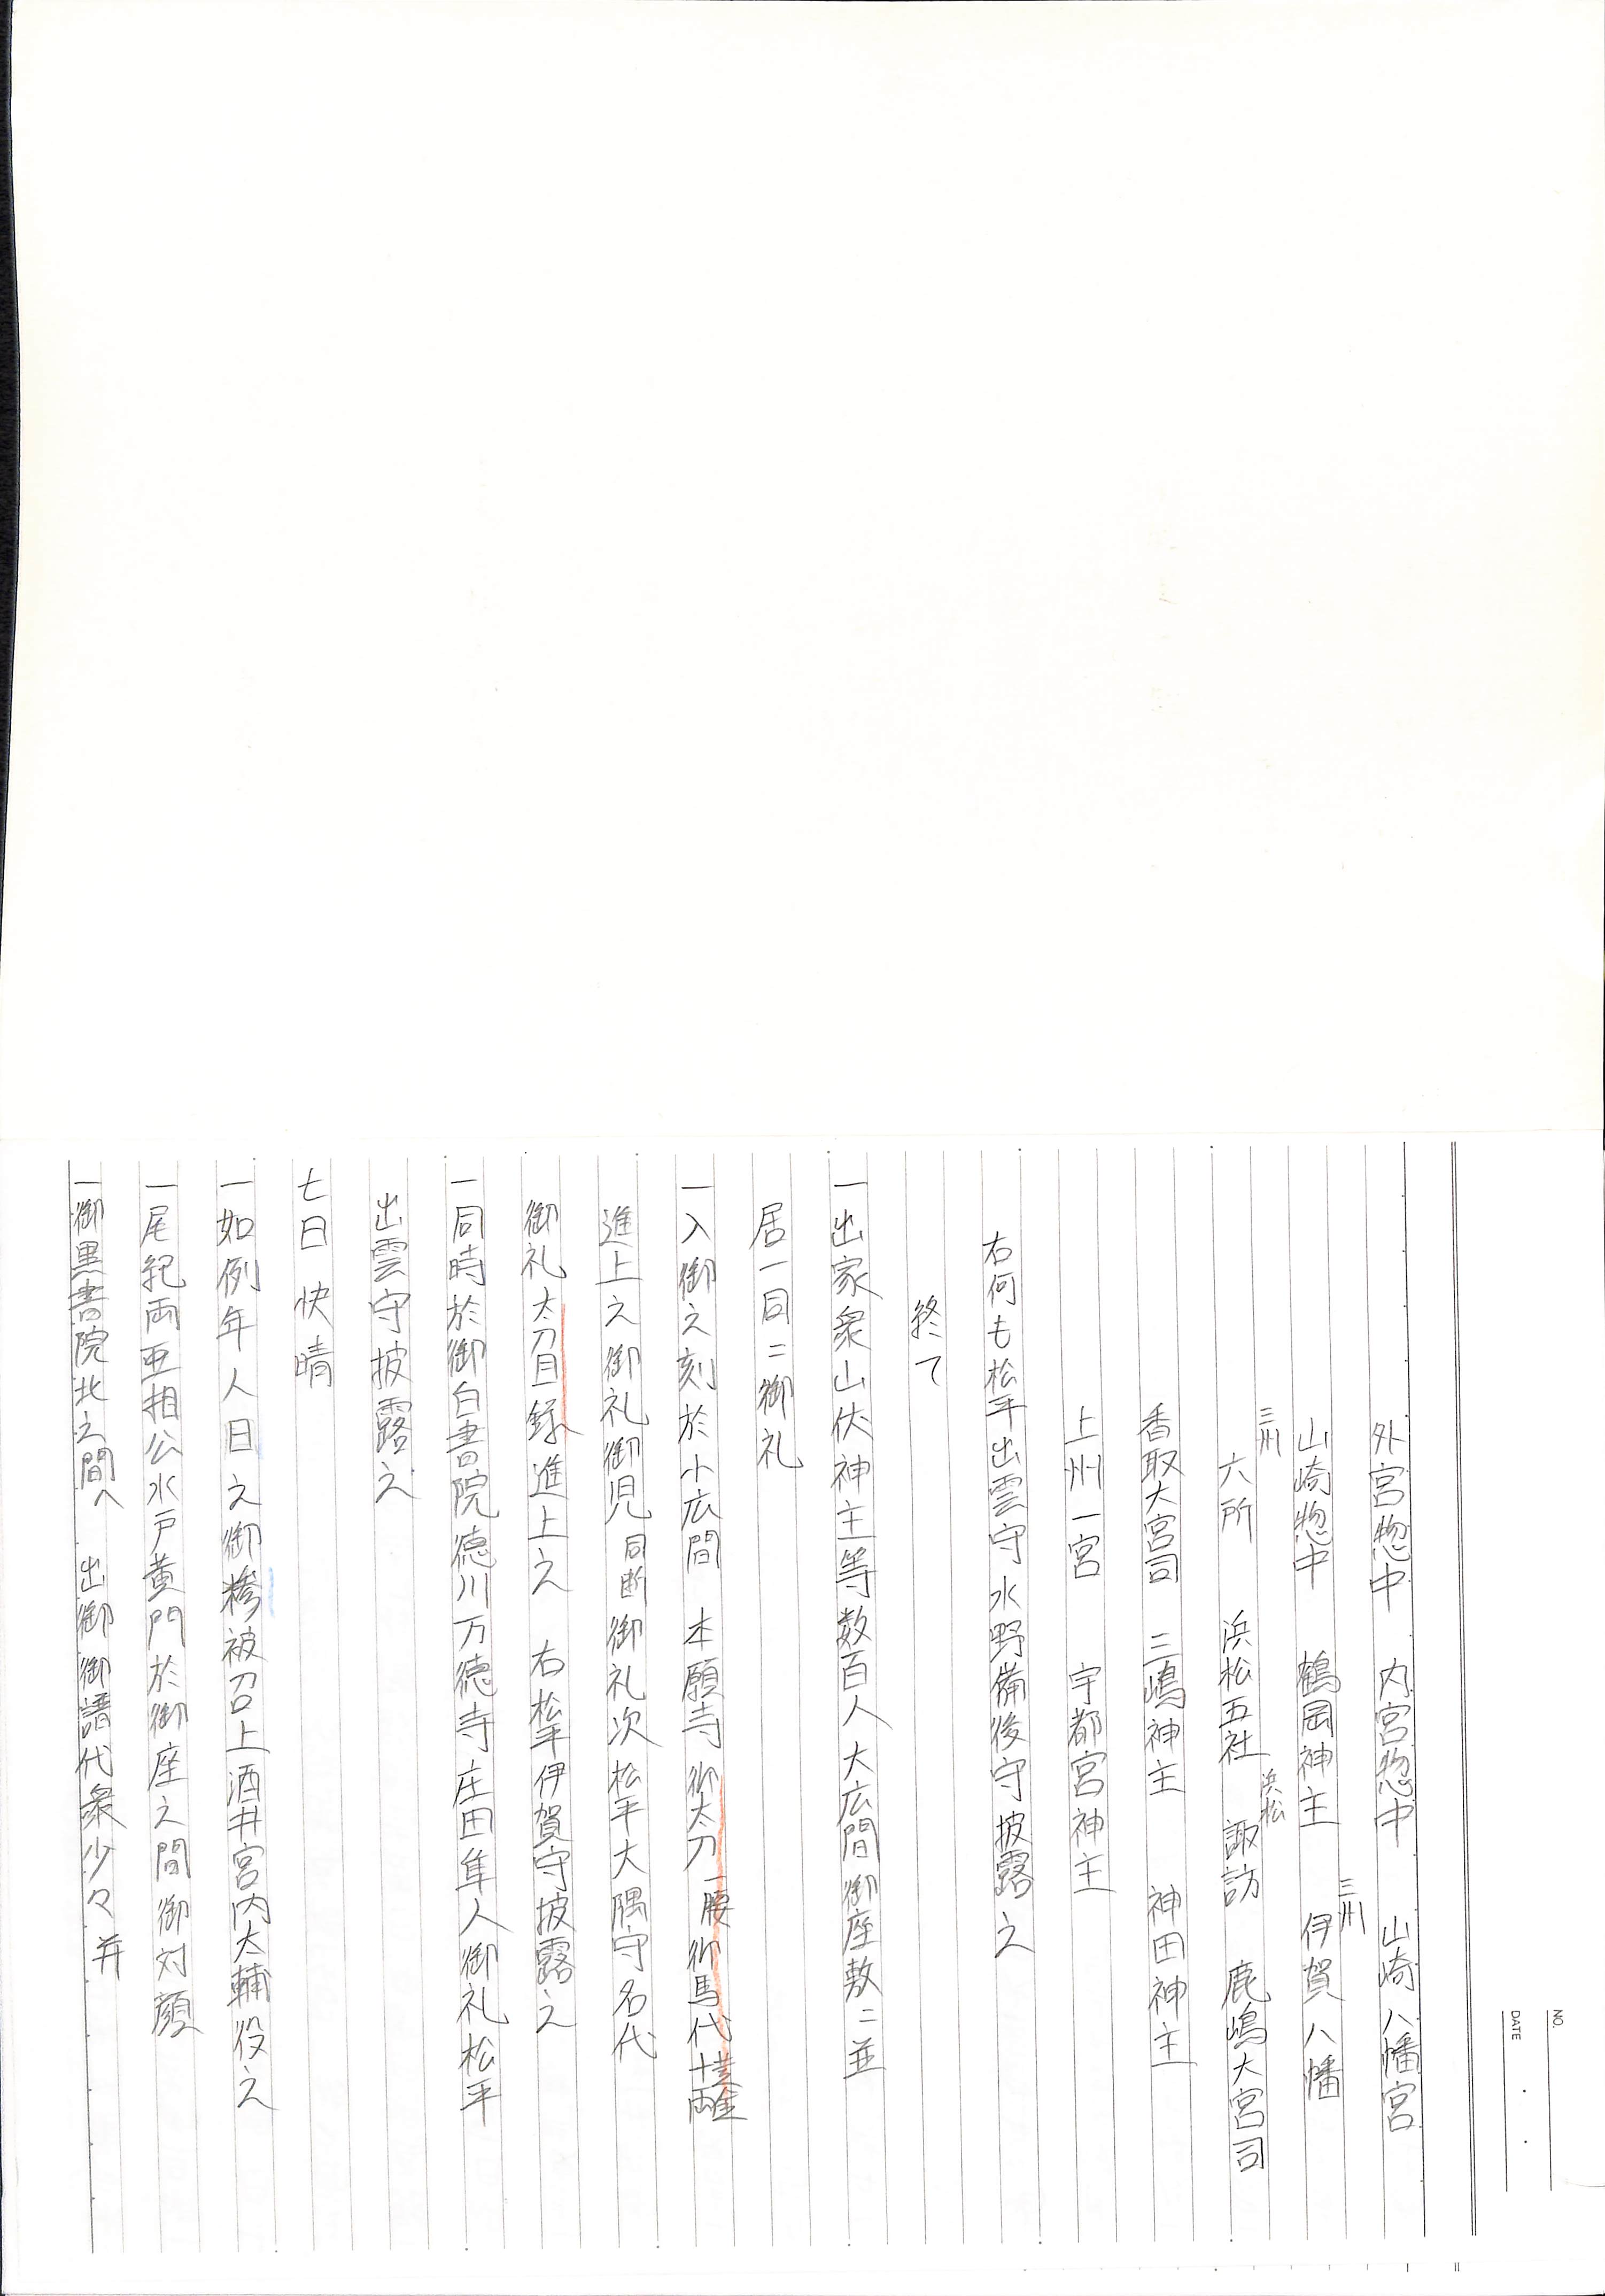 NO.
DATE
外宮惣中 内宮惣中 山崎八幡宮
山崎惣中 鶴岡神主 三州 伊賀八幡
三州 六所 浜松五社 浜松 諏訪 鹿嶋大宮司
香取大宮司 三嶋神主 神田神主
上州一宮 宇都宮神主
右何も松平出雲守水野備後守披露之
終て
一出家衆山伏神主等数百人大広間御座敷ニ並
居一同ニ御礼
一入御之刻於小広間 本願寺 御太刀一腰御馬代
進上之御礼御児同断御礼次松平大隅守名代
御礼太刀目録進上之 右松平伊賀守披露之
一同時於御白書院徳川万徳寺庄田隼人御礼松平
出雲守披露之
七日 快晴
一如例年人日之御糝被召上酒井宮内大輔役之
一尾紀両亜相公水戸黄門於御座之間御対顔
一御黒書院北之間へ 出御御譜代衆少々并